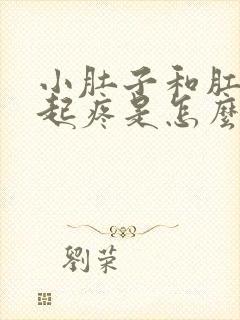 小肚子和肛
起疼是怎麼
劉荣